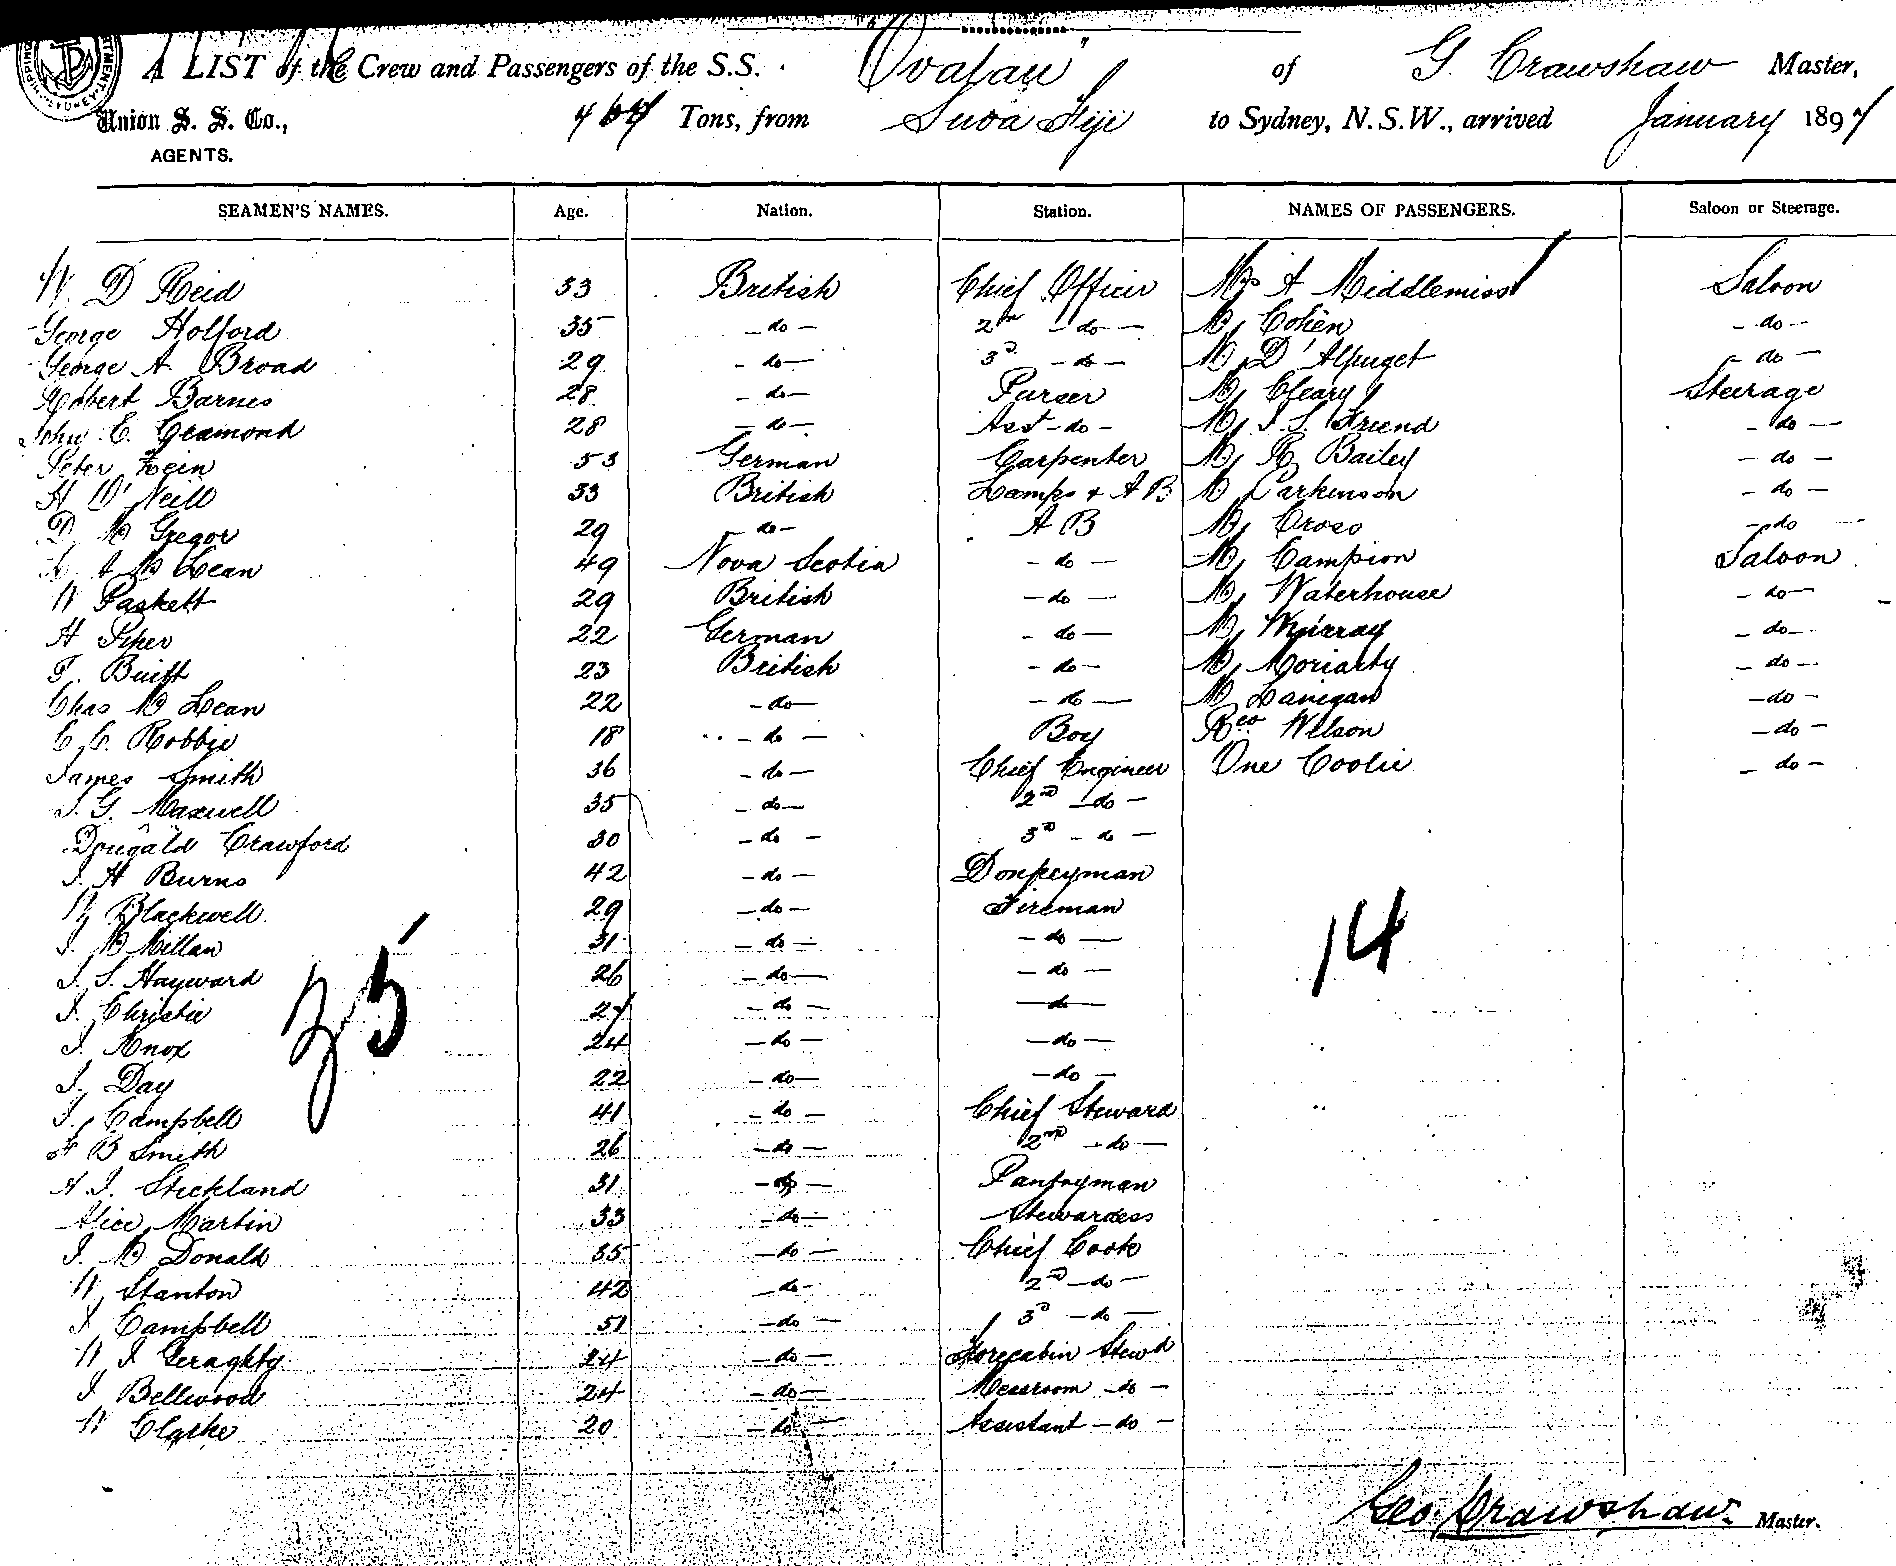 A LIST of the Crew and Passengers of the S.S. "Ovalau" of G. Crawshaw Master,
Union S. S. Co., 464 Tons, from Suva Fiji to Sydney, N.S.W., arrived January 1897
AGENTS.
SEAMEN'S NAMES. Age. Nation. Station. NAMES OF PASSENGERS. Saloon or Steerage.
W. D Reid 33 British Chief Officer Mrs A Middlemiss Saloon
George Holford 35 - do - 2nd - do - Mr Cohen - do -
George A Broad 29 - do - 3d - do - Mr D'Alpuget - do -
Robert Barnes 28 - do - Purser Mr Cleary Steerage
John E. Gramond 28 - do - Asst - do - Mr I. S. Friend - do -
Peter Hein 53 German Carpenter Mr R Bailey - do -
H O'Neill 33 British Lamps + A B Mr Parkinson - do -
D McGregor 29 - do - A B Mr Cross - do -
A McLean 49 Nova Scotia - do - Mr Campion Saloon
W Paskett 29 British - do - Mr Waterhouse - do -
H Piper 22 German - do - Mr Murray - do -
T. Buift 23 British - do - Mr Moriarty - do -
Chas McLean 22 - do - - do - Mr Lanigan - do -
C. C. Robbie 18 - do - Boy Reo Wilson - do -
James Smith 36 - do - Chief Engineer One Coolie - do -
J. G. Maxwell 35 - do - 2nd - do -
Dougald Crawford 30 - do - 3d - do -
J. H Burns 42 - do - Donkeyman
W Blackwell 29 - do - Fireman
J. McMillan 31 - do - - do -
J. S. Hayward 26 - do - - do -
J. Christie 27 - do - - do -
J. Knox 24 - do - - do -
J. Day 22 - do - - do -
J. Campbell 41 - do - Chief Steward
F B Smith 26 - do - 2nd - do -
A. J. Stickland 31 - do - Pantryman
Alice Martin 33 - do - Stewardess
J. McDonald 35 - do - Chief Cook
W Stanton 42 - do - 2nd - do -
J Campbell 51 - do - 3d - do -
W J Geraghty 24 - do - Forecabin Stewd
J Bellwood 24 - do - Messroom - do -
W Clarke 20 - do - Assistant - do -
35
14
Geo. Crawshaw. Master.